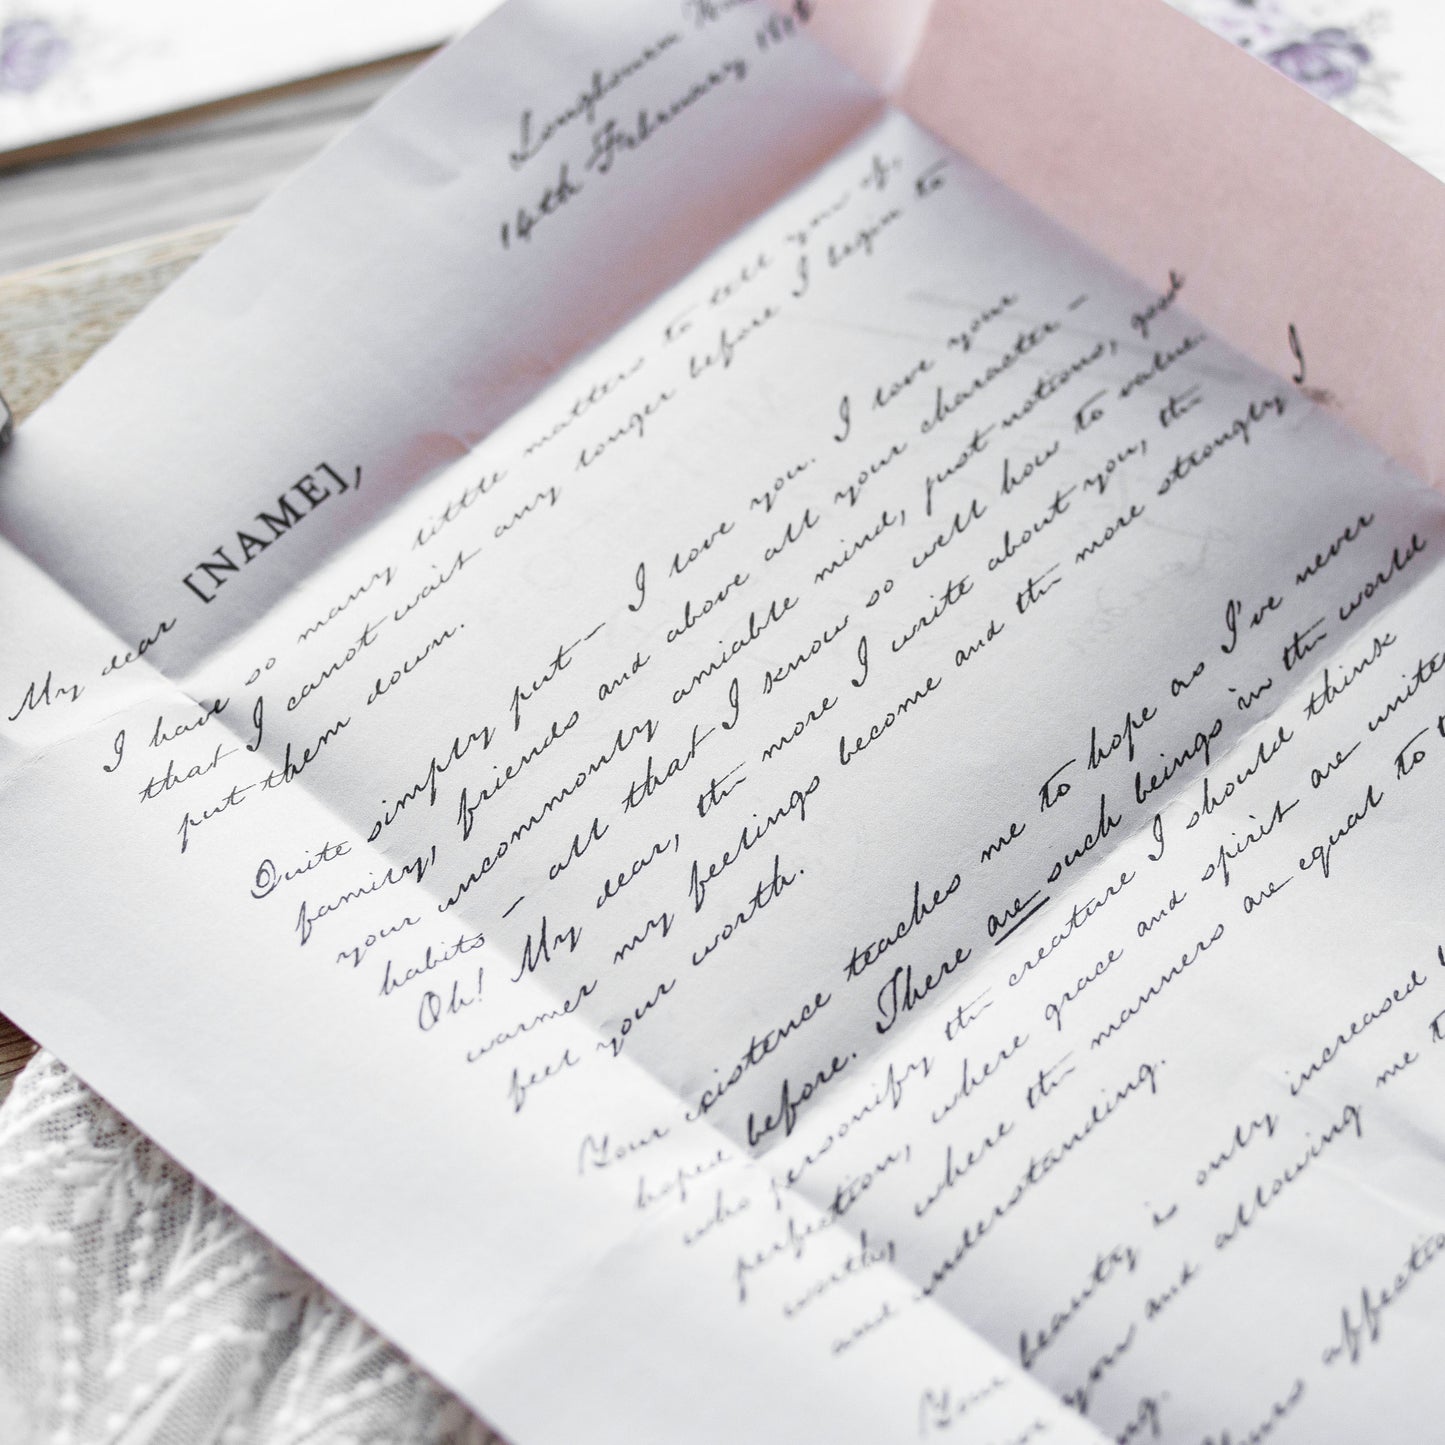 Longbourn
14th February
My dear [NAME],
I have so many little matters to tell you of,
that I cannot wait any longer before I begin to
put them down.
Quite simply put – I love you. I love your
family, friends and above all your character –
your uncommonly amiable mind, just notions, good
habits – all that I know so well how to value.
Oh! My dear, the more I write about you, the
warmer my feelings become and the more strongly I
feel your worth.
Your existence teaches me to hope as I've never
hoped before. There are such beings in the world
who personify the creature I should think
perfection, where grace and spirit are united
worth, where the manners are equal to
and understanding.
Your beauty is only increased
you and allowing me